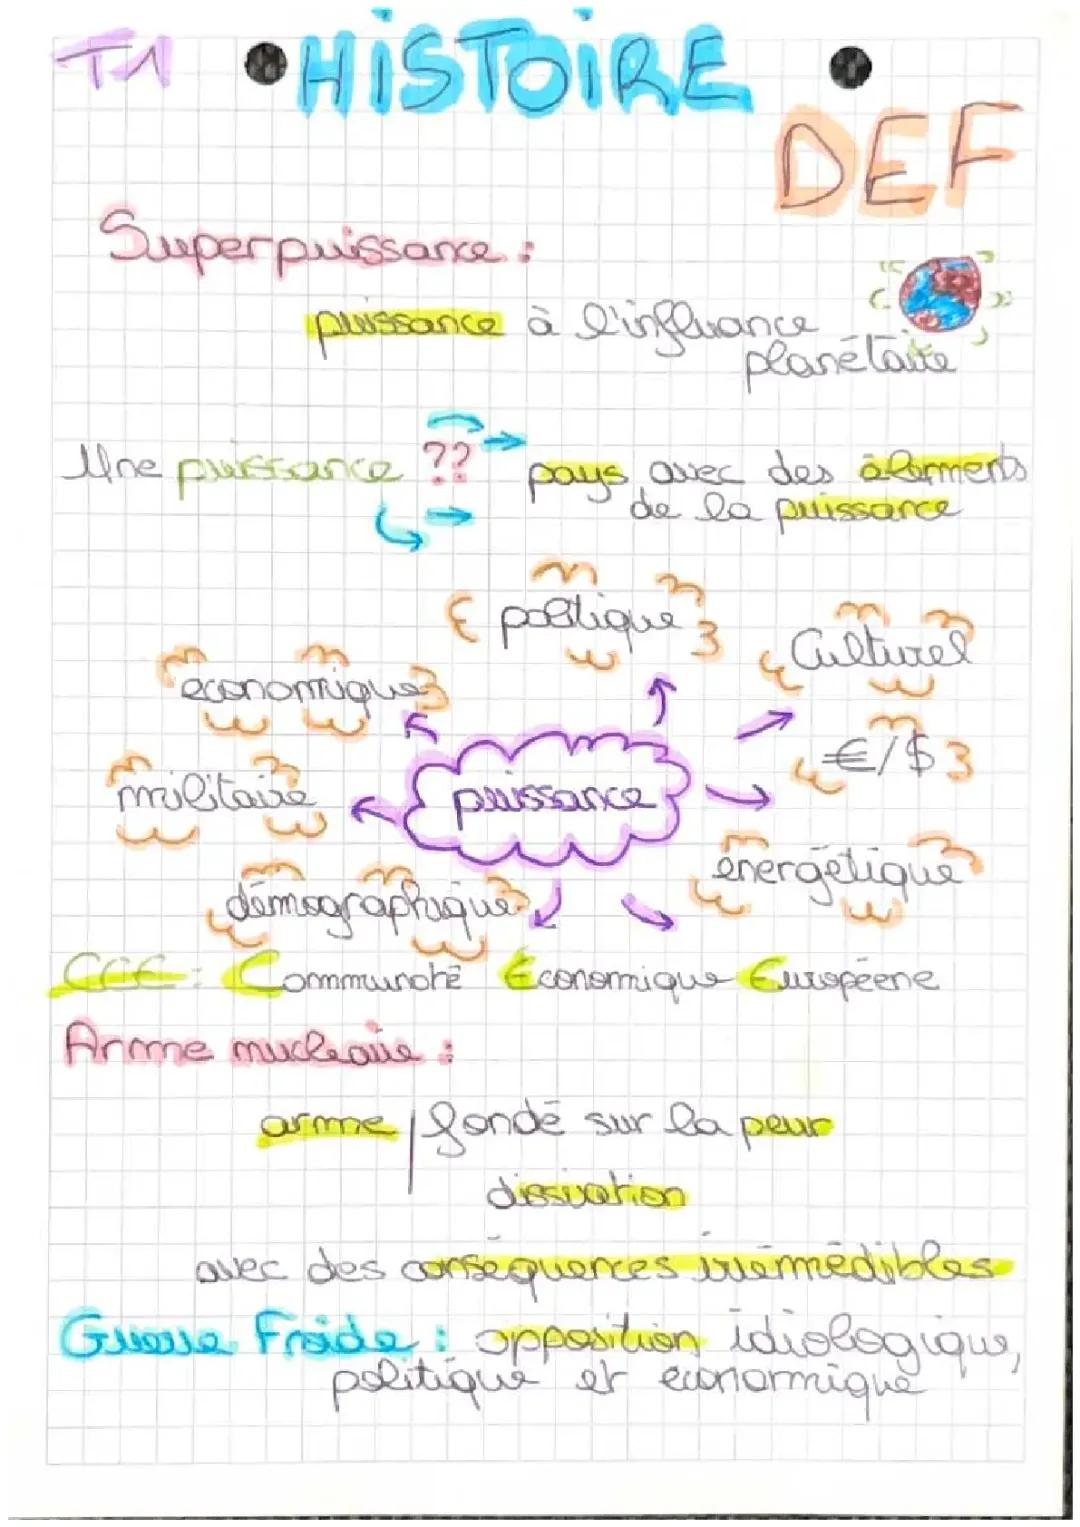 T1 HISTOIRE
DEF
Superpuissance :
puissance à l'influance
planétaire
Une puissance ?? pays avec des élements
de la puissance
politique
Culturel
économique
€/$
militaire
puissance
énergétique
démographique
CEE : Communoté Économique Européene
Arme nucleaire :
arme fondé sur la peur
dissuation
avec des conséquences irrémédibles
Guerre Froide : opposition idiologique,
politique et economique